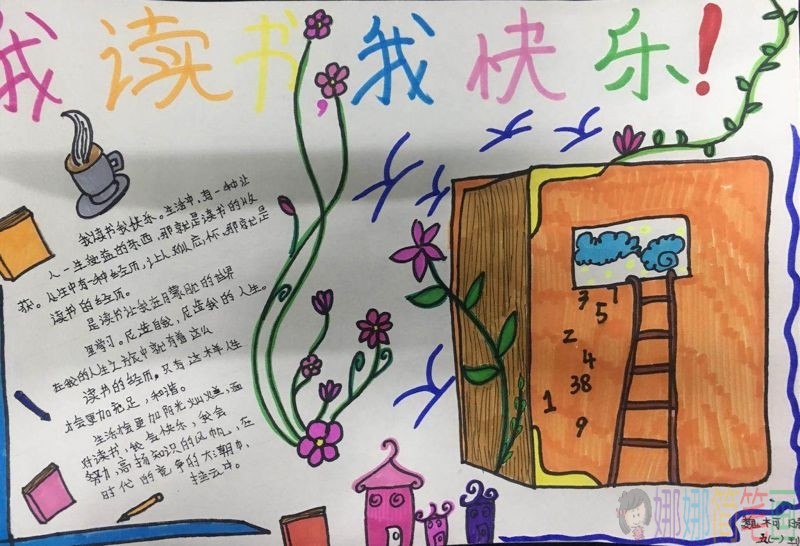 我读书,我快乐!
我读书我快乐。生活中,有一种让
人一生受益的东西,那就是读书的收
获。人生中有一种经历,让人难以忘怀,那就是
读书的经历。
是读书让我在自由的世界
里学习。足造自我,足造我的人生。
在我的人生之旅中就有着这么
读书的经历。只有这样人生
才会更加充足,和谐。
生活会更加阳光灿烂,面
对读书,我是快乐,我会
努力高扬知识的风帆,在
时代的竞争的大潮中,
拯云斗。
3
1
5
2
4
38
1
9
娜娜简笔画
五(一)班